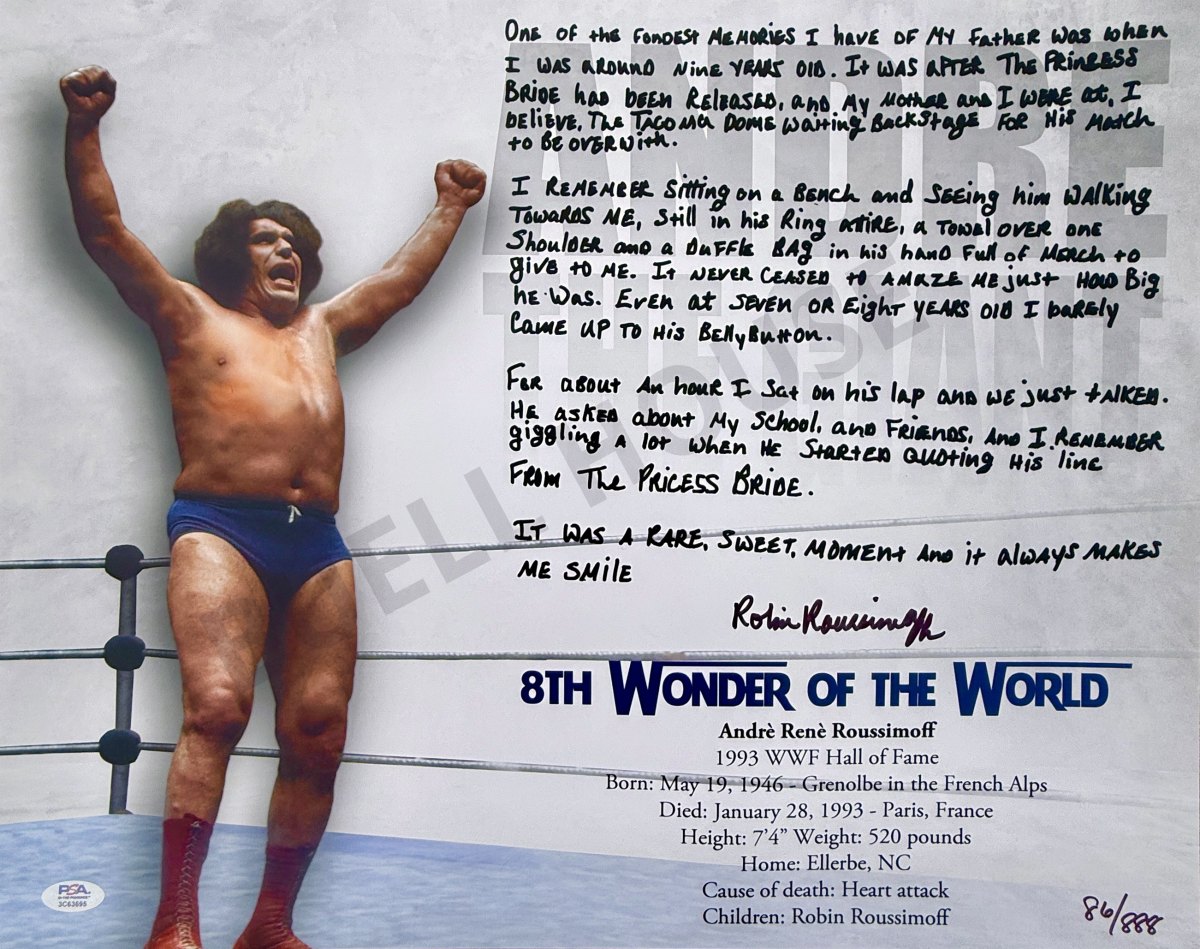 ANDRE
THE GIANT
ONE OF the FONDEST MEMORIES I have OF MY Father Was when
I WAS AROUND NINE YEARS OLD. It WAS AFTER The PRINCESS
BRIDE had BEEN RELEASED, and My Mother and I WERE at, I
BELIEVE, The TACOMA DOME Waiting BackStage FOR His Match
to BE OVER With.
I REMEMBER Sitting on a BENCH and SEEING him WALKING
TOWARDS ME, Still in his Ring ATTIRE, a TOWEL OVER ONE
Shoulder and a DUFFLE BAG in his hand Full of MERCH to
give to ME. It NEVER CEASED to AMAZE ME just HOW Big
he Was. Even at SEVEN OR Eight YEARS OLD I barely
CAME UP TO His Bellybutton.
For about An hour I Sat on his lap and WE just tALKED.
He asked about My School, and FRIENDS, And I REMEMBER
giggling a lot when HE STARTED QUOTING His line
FROM The PRICESS BRIDE.
It WAS A RARE, SWEET, MOMENT And it always MAKES
ME SMILE
Robin Roussimoff
8TH WONDER OF THE WORLD
Andrè Renè Roussimoff
1993 WWF Hall of Fame
Born: May 19, 1946 - Grenolbe in the French Alps
Died: January 28, 1993 - Paris, France
Height: 7'4” Weight: 520 pounds
Home: Ellerbe, NC
Cause of death: Heart attack
Children: Robin Roussimoff
PSA
3C63695
86/888
ELL HOUSE